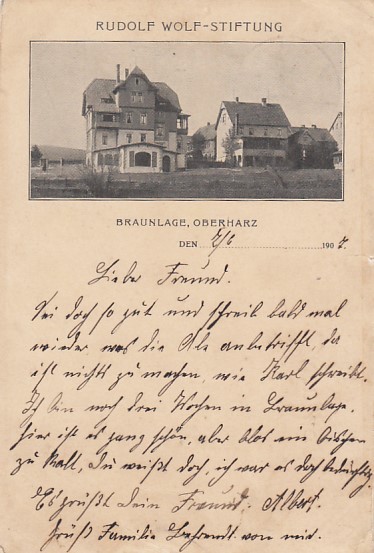 RUDOLF WOLF-STIFTUNG
BRAUNLAGE, OBERHARZ
DEN 2/6 1907.
Liebe Freund.
Sei doch so gut und schreib bald mal
wieder was die Ale anbetrifft, da
ist nichts zu machen, wie Karl schreibt.
Ich bin noch drei Wochen in Braunlage.
Hier ist es ganz schön, aber blos ein bischen
zu kalt, Du weißt doch, ich war es doch
Es grüßt Dein Freund: Albert.
Grüß Familie Behrendt von mir.